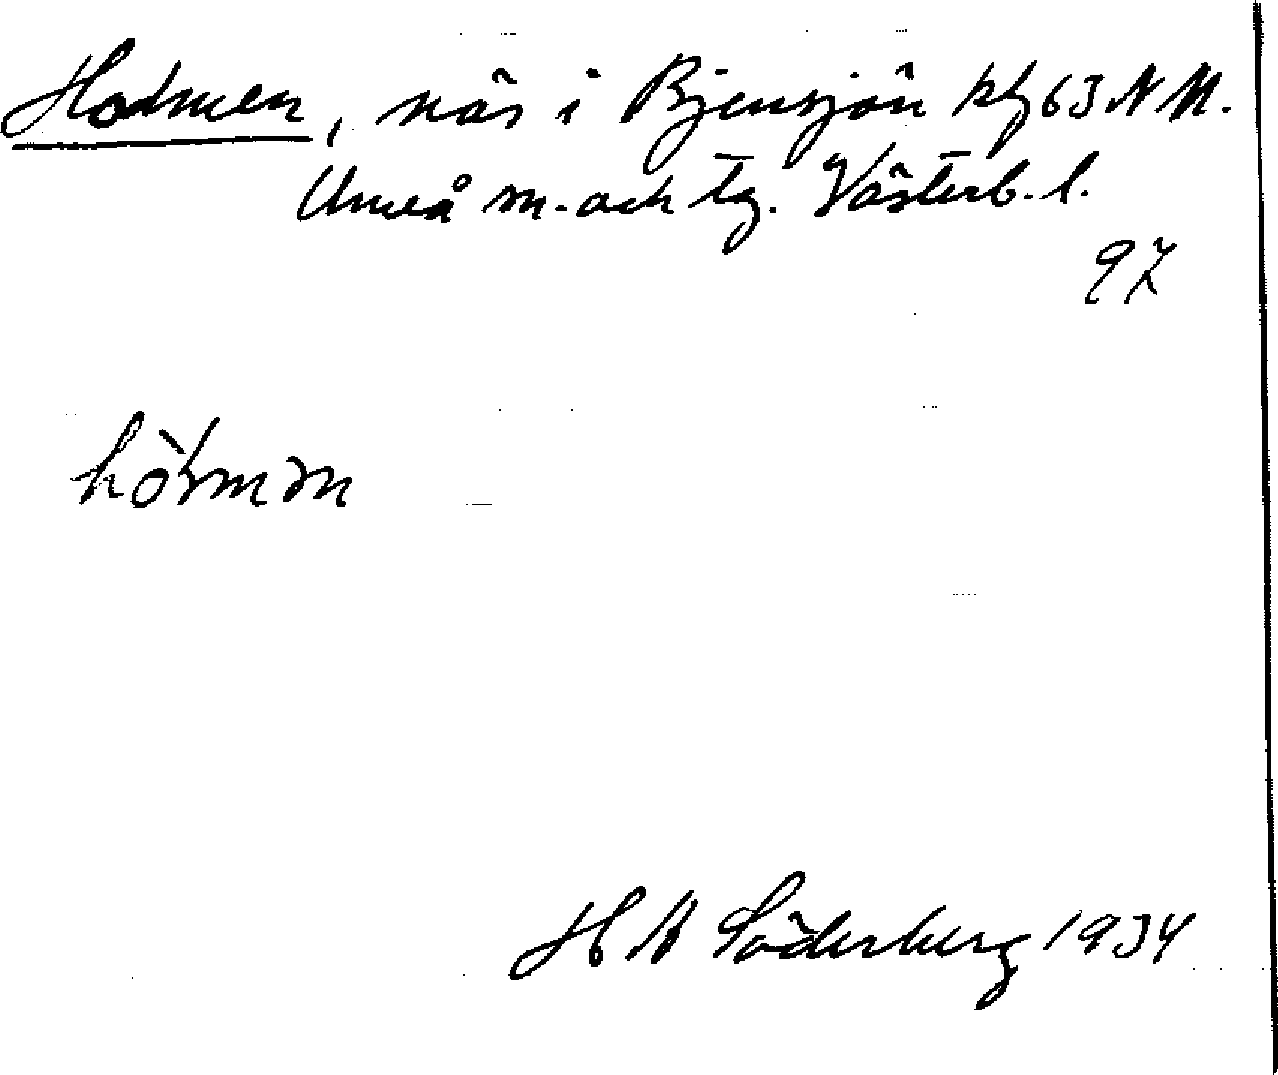 Holmen, näs i Bjensjön kbl 63 NM.
Umeå m. och tg. Västerb. l.
97
hòɫmən
H M Söderberg 1934